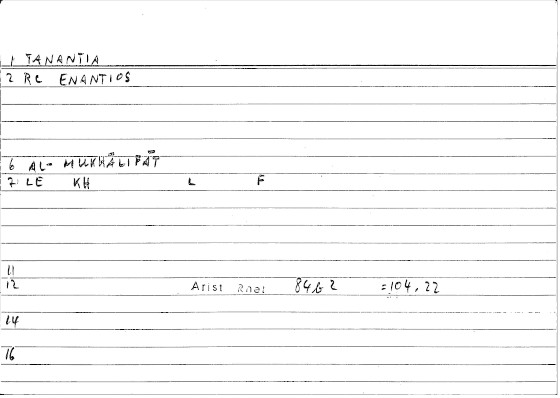 1 TANANTIA
2 RC ENANTIOS
6 AL- MUKHĀLIFĀT
7 LE KH L F
11
12 Arist Rhet 84b2 =104,22
14
16